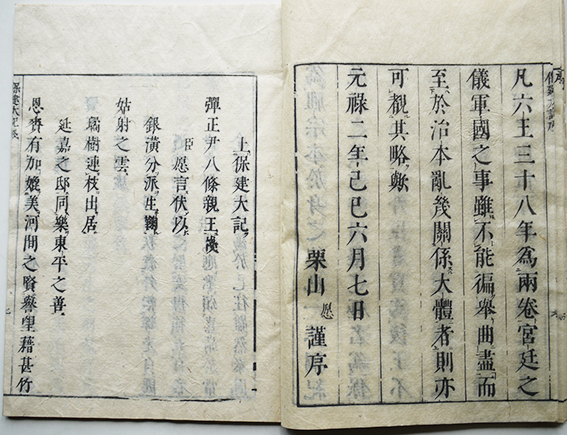 凡六王三十八年爲兩卷宮廷之
儀軍國之事雖不能徧舉曲盡而
至於治本亂幾關係大體者則亦
可觀其略歟
元祿二年己巳六月七日
栗山愿謹序
上保建大記
彈正尹八條親王牋
臣愿言伏以
銀潢分派生
姑射之雲
瓊樹連枝出居
延嘉之邸同樂東平之善
恩賚有加媲美河間之賢譽望藉甚竹
保建大記